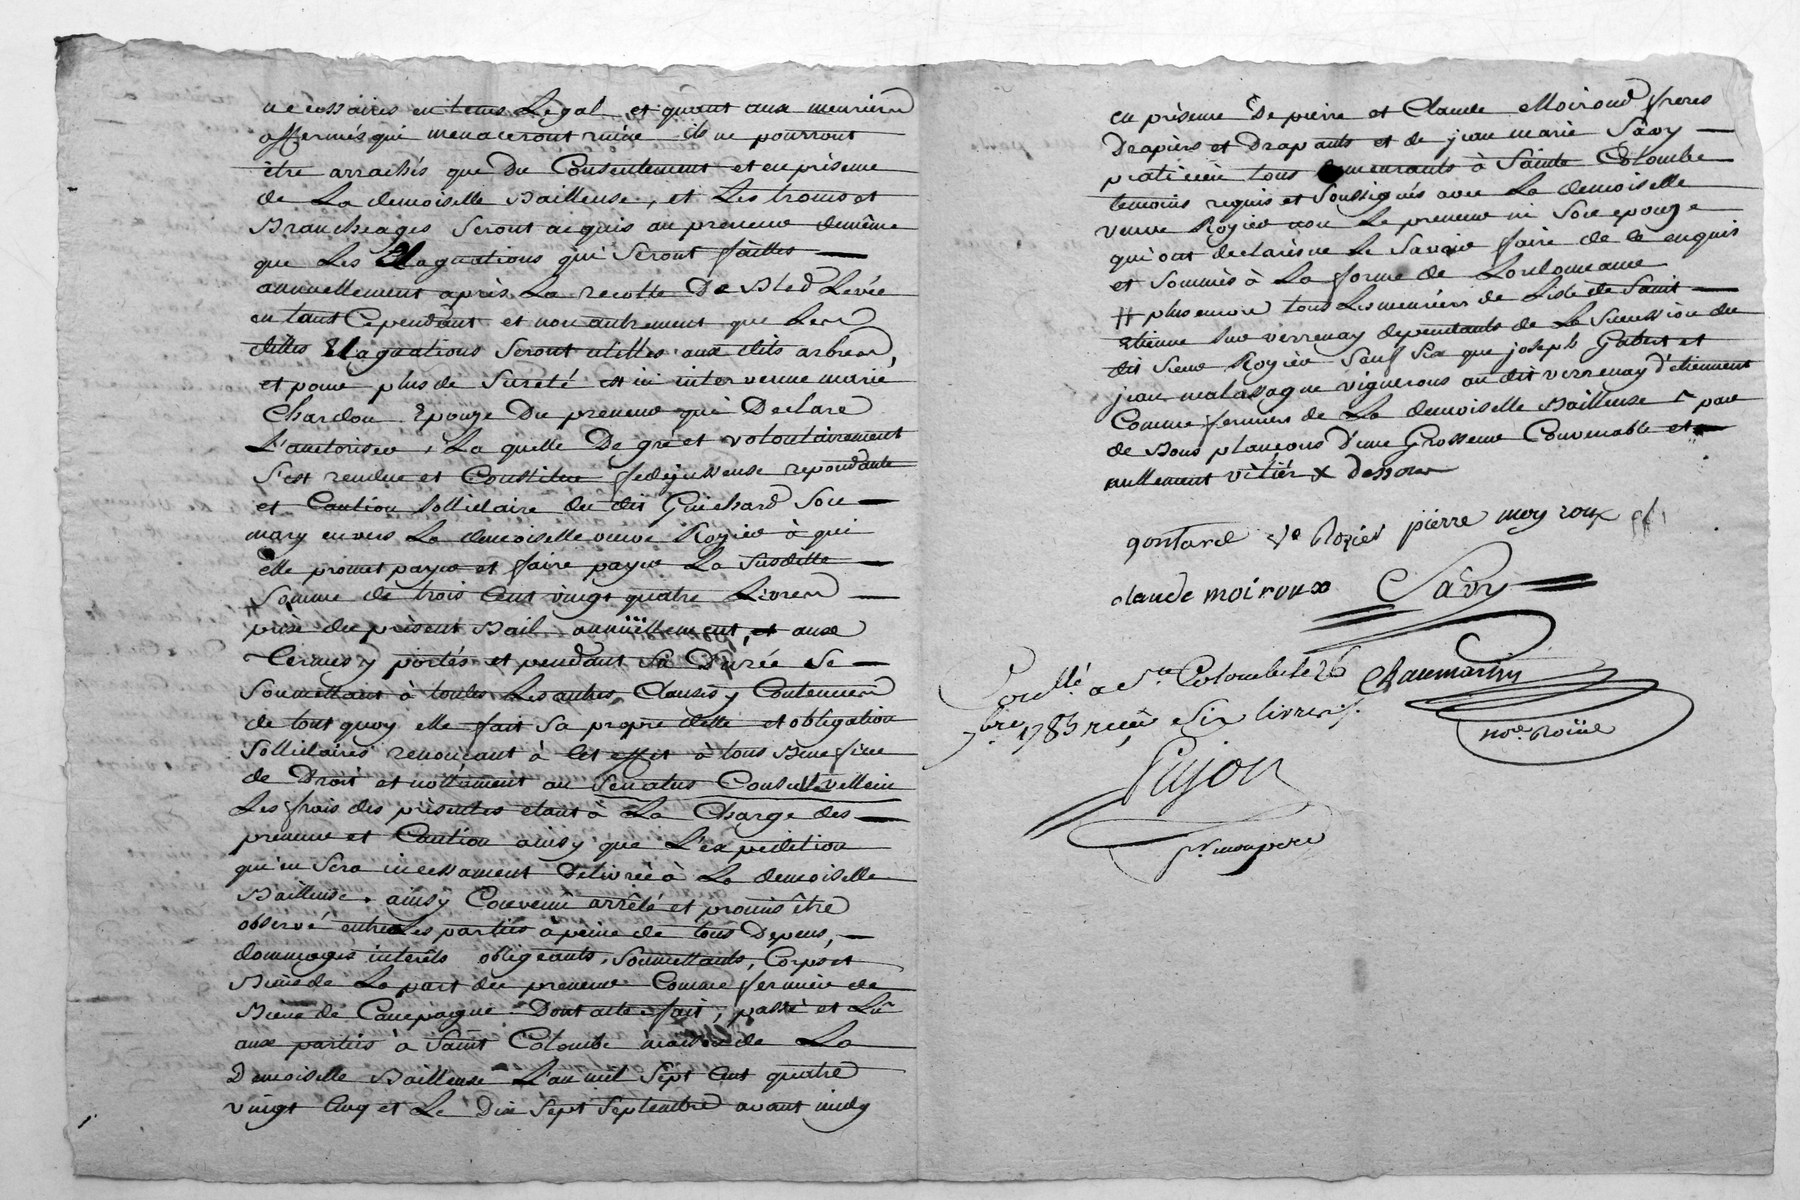 necessaires en tems Légal et quant aux meuriers
affermés qui menaceront ruine ils ne pourront
être arrachés que du Consentement et en présence
de La demoiselle Bailleuse, et Les troncs et
Brancheages seront acquis au preneur de même
que Les Elaguations qui seront faittes
annuellement après La recolte De Bled Levée
en tant Cependant et non autrement que Les
dittes Elaguations seront utilles aux dits arbres,
et pour plus de sureté est ici intervenue marie
Chardon Epouze Du preneur qui Declare
L'authoriser, La quelle De gré et volontairement
s'est rendue et Constituée fedejusseuse repondante
et Caution sollidaire du dit Guichard son
mary envers La demoiselle veuve Rozier à qui
elle promet payer et faire payer La susditte
somme de trois cent vingt quatre Livres
prix du présent Bail annüellement, et aux
Termes y portés et pendant sa Durée se
soumettant à toutes Les autres Clauses y Contenues
de tout quoy elle fait sa propre dette et obligation
sollidaires renonçant à cet effet à tous Bénéfice
de Droit et nottament au Senatus Consulte velleïn
Les frais des présentes etant à La Charge des
preneur et Caution ainsy que L'expédition
qui en sera incessament Délivrée à La demoiselle
Bailleuse. ainsy Convenu arrêté et promis être
observé entre Les parties à peine de tous Depens,
dommages intérêts obligeants, soumettants, Corps et
Biens de La part du preneur Comme fermier de
Biens de Campagne Dont acte fait, passé et Lu
aux parties à Saint Colombe maison de La
Demoiselle Bailleuse L'an mil sept cent quatre
vingt cinq et Le Dix sept septembre avant midy
en présence De pierre et Claude Moiroud freres
Drapiers et Drapants et de jean marie Sâvy
praticien tous demeurants à Sainte Colombe
temoins requis et soussignés avec La demoiselle
veuve Rozier non Le preneur ni son epouze
qui ont declarés ne Le savoir faire de ce enquis
et sommés à La forme de L'ordonnance
# plus encore tous Les meuriers de L'isle de Saint
Etienne sur verrenay dependants de La succession du
dit sieur Rozier sauf six que joseph Gabert et
jean malassagne vignerons au dit verrenay d'étiennent
Comme fermiers de La demoiselle Bailleuse par
de Bons plançons d'une Grosseur Convenable et
nullement vitiér x dessous
gontard Ve Rozier pierre moy roux
claude moiroux Savy
Conllé a Ste Colombe le 26
7bre 1785 reçu six livres
Chaumartin
nore Roïial
Pujon
pr mon pere